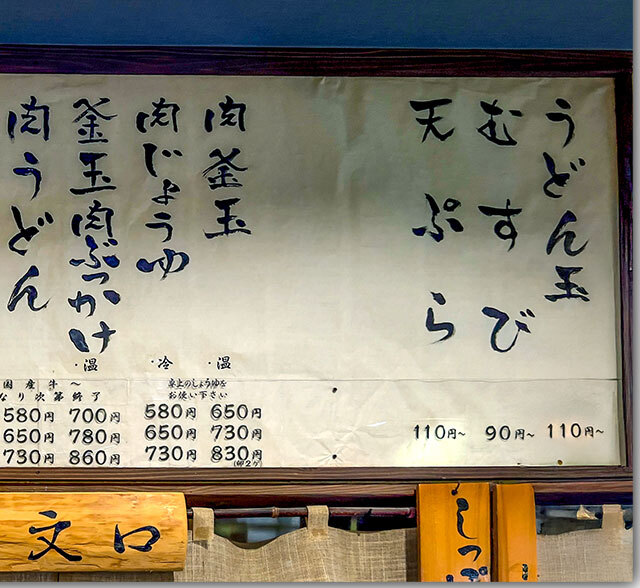 うどん玉
むすび
天ぷら
肉釜玉
肉じょうゆ
釜玉肉ぶっかけ
肉うどん
・温
・冷
・温
卓上のしょうゆを
お使い下さい
国産牛～
なり次第終了
110円～
90円～
110円～
650円
730円
830円
(卵2ケ)
580円
650円
730円
700円
780円
860円
580円
650円
730円
文口
しっぽ